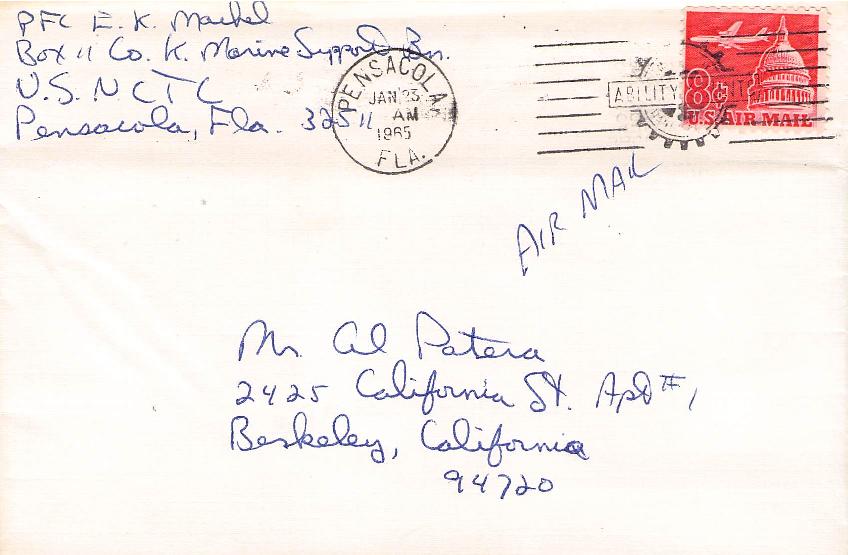 PFC E. K. Machel
Box 11 Co. K. Marine Support Bn.
U.S. NCTC
Pensacola, Fla. 32511
PENSACOLA,
JAN 23
AM
1965
FLA.
ABILITY
8¢
U.S. AIR MAIL
AIR MAIL
Mr. Al Patera
2425 California St. Apt #1
Berkeley, California
94720